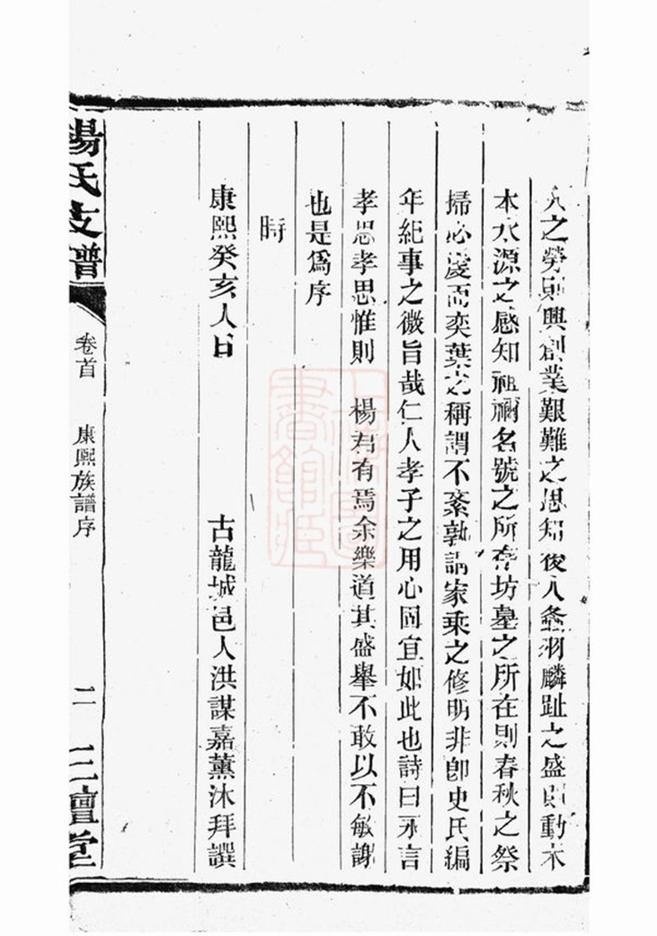 人之勞則興創業艱難之思知後人螽羽麟趾之盛則動木
本水源之感知祖禰名號之所存坊墓之所在則春秋之祭
掃必虔而奕葉之稱謂不紊孰謂家乘之修明非卽史氏編
年紀事之微旨哉仁人孝子之用心固宜如此也詩曰永言
孝思孝思惟則 楊君有焉余樂道其盛舉不敢以不敏謝
也是爲序
時
康熙癸亥人日 古龍城邑人洪謀嘉薰沐拜譔
楊氏支譜 卷首 康熙族譜序 二 三鱣堂